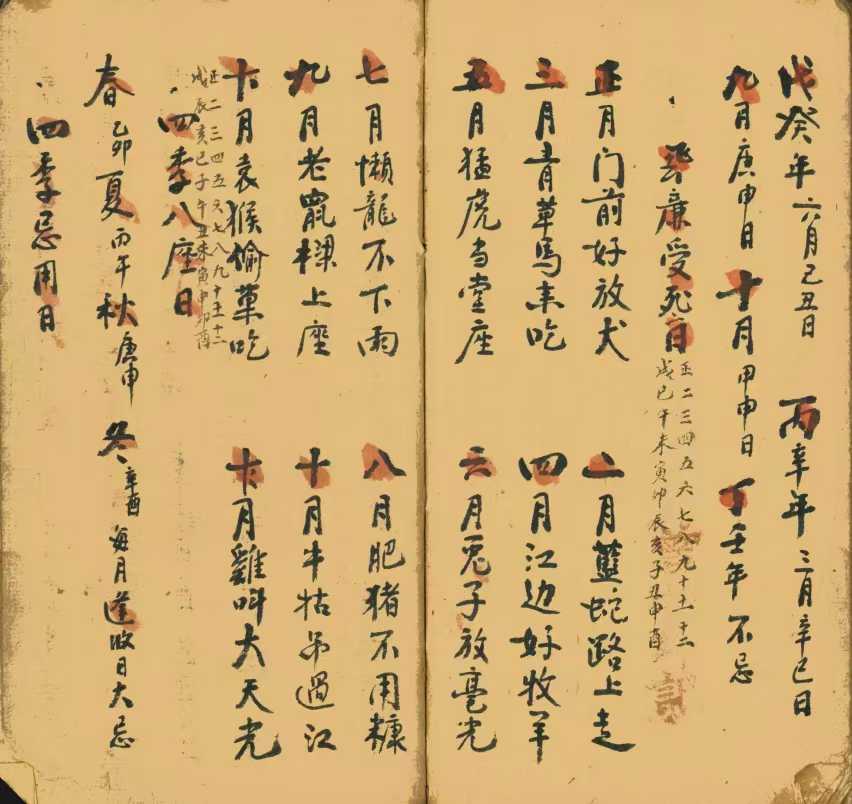 戊癸年六月己丑日 丙辛年三月辛巳日
九月庚申日 十月甲申日 丁壬年不忌
飛廉受死日
正二三四五六七八九十十一十二
戌巳午未寅卯辰亥子丑申酉
正月门前好放犬 二月藍蛇路上走
三月青草馬来吃 四月江边好牧羊
五月猛虎当堂座 六月兎子放毫光
七月懶龍不下雨 八月肥猪不用糠
九月老鼠樑上座 十月牛牯吊過江
十一月袁猴偷草吃 十二月雞叫大天光
四季八座日
正二三四五六七八九十十一十二
戌辰亥巳子午丑未寅申卯酉
春乙卯夏丙午秋庚申 冬辛酉每月逢收日大忌
四季忌用日